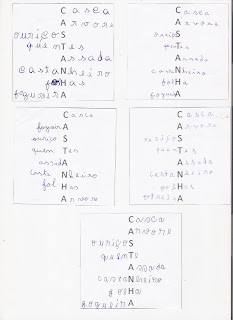 Casca
Arvore
ouriçoS
quenTes
Assada
castaNheiro
fogueirA
Casca
Arvore
ouriçoS
Assada
folHas
Casca
ouriçoS
quenTes
assAda
castaNheiro
folHas
Arvore
Casca
Arvore
ouriçoS
quenTes
Assada
castaNheiro
folHas
Casca
Arvore
ouriçoS
quenTe
Assada
castaNheiro
folHa
fogueirA